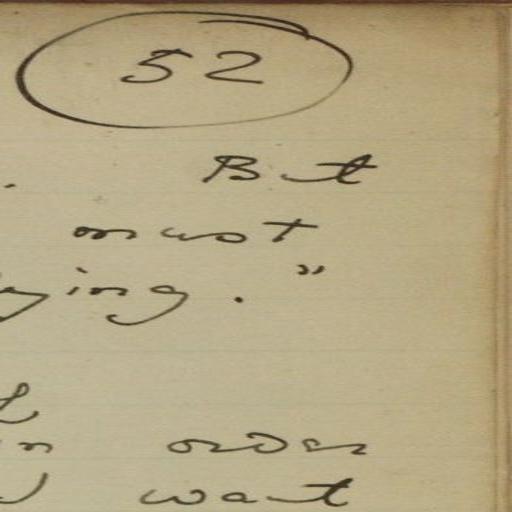 52
. But
must
ying."
in order
want